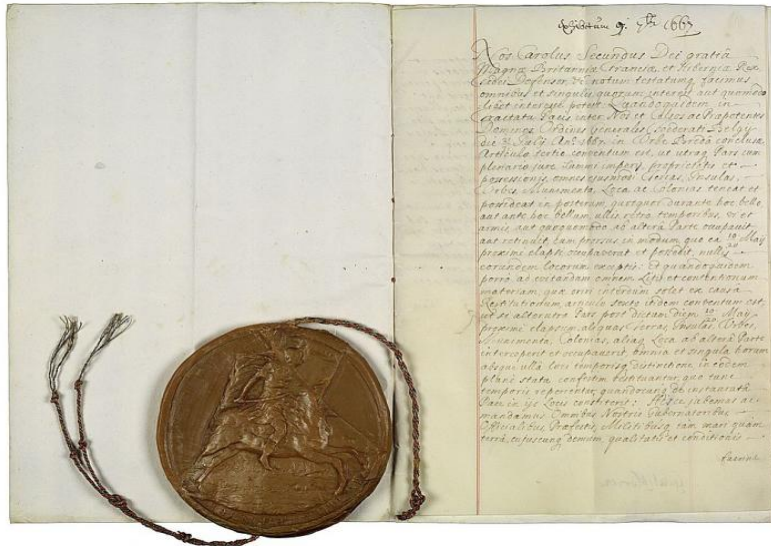 Exhibitum 9. 7bris 1667
Nos Carolus Secundus Dei gratiâ
Magnæ Britanniæ Franciæ, et Hiberniæ Rex
fidei Defensor, &c notum testatumq, facimus
omnibus et singulis quorum interest aut quomodo
libet interesse poterit. Quandoquidem in
tractatu Pacis inter Nos et Celsos ac Præpotentes
Dominos Ordines Generales Fœderati Belgij
die Julij Ano 1667. in Urbe Bredâ conclusæ,
Articulo tertio conventum est, ut utraq, Pars cum
plenario jure summi imperij, proprietatis et
possessionis, omnes ejusmodi Terras, Insulas,
Urbes, Munimenta, Loca ac Colonias teneat et
possideat in posterum, quotquot durante hoc bello,
aut ante hoc bellum, ullis retro temporibus, vi et
armis, aut quoquomodo ab alterâ Parte occupavit,
aut retinuit, eum prorsus in modum quo ea 10/20 Maij
proxime elapsi occupaverat et possedit, nullis
eorundem locorum exceptis: Et quandoquidem
porro ad evitandam omnem Litis et contentionum
materiam, quæ oriri interdum solet ex causâ
Restitutionum, articulo sexto itidem conventum est,
ut si alterutra Pars post dictam diem 10/20 Maij
proxime elapsum, aliquas Terras, Insulas, Urbes,
Munimenta, Colonias, aliaq, Loca ab alterâ Parte
interceperit et occupaverit, omnia et singula horum
absque ullâ loci temporisq, distinctione, in eodem
plane statu confestim restituantur, quo tunc
temporis reperientur, quandocunq, de instauratâ
Pace in ijs Locis constiterit: Hisce jubemus ac
mandamus Omnibus Nostris Gubernatoribus
Officialibus, Præfectis, Militibusq, tam mari quam
terrâ, cujuscunq, demum, qualitatis et conditionis